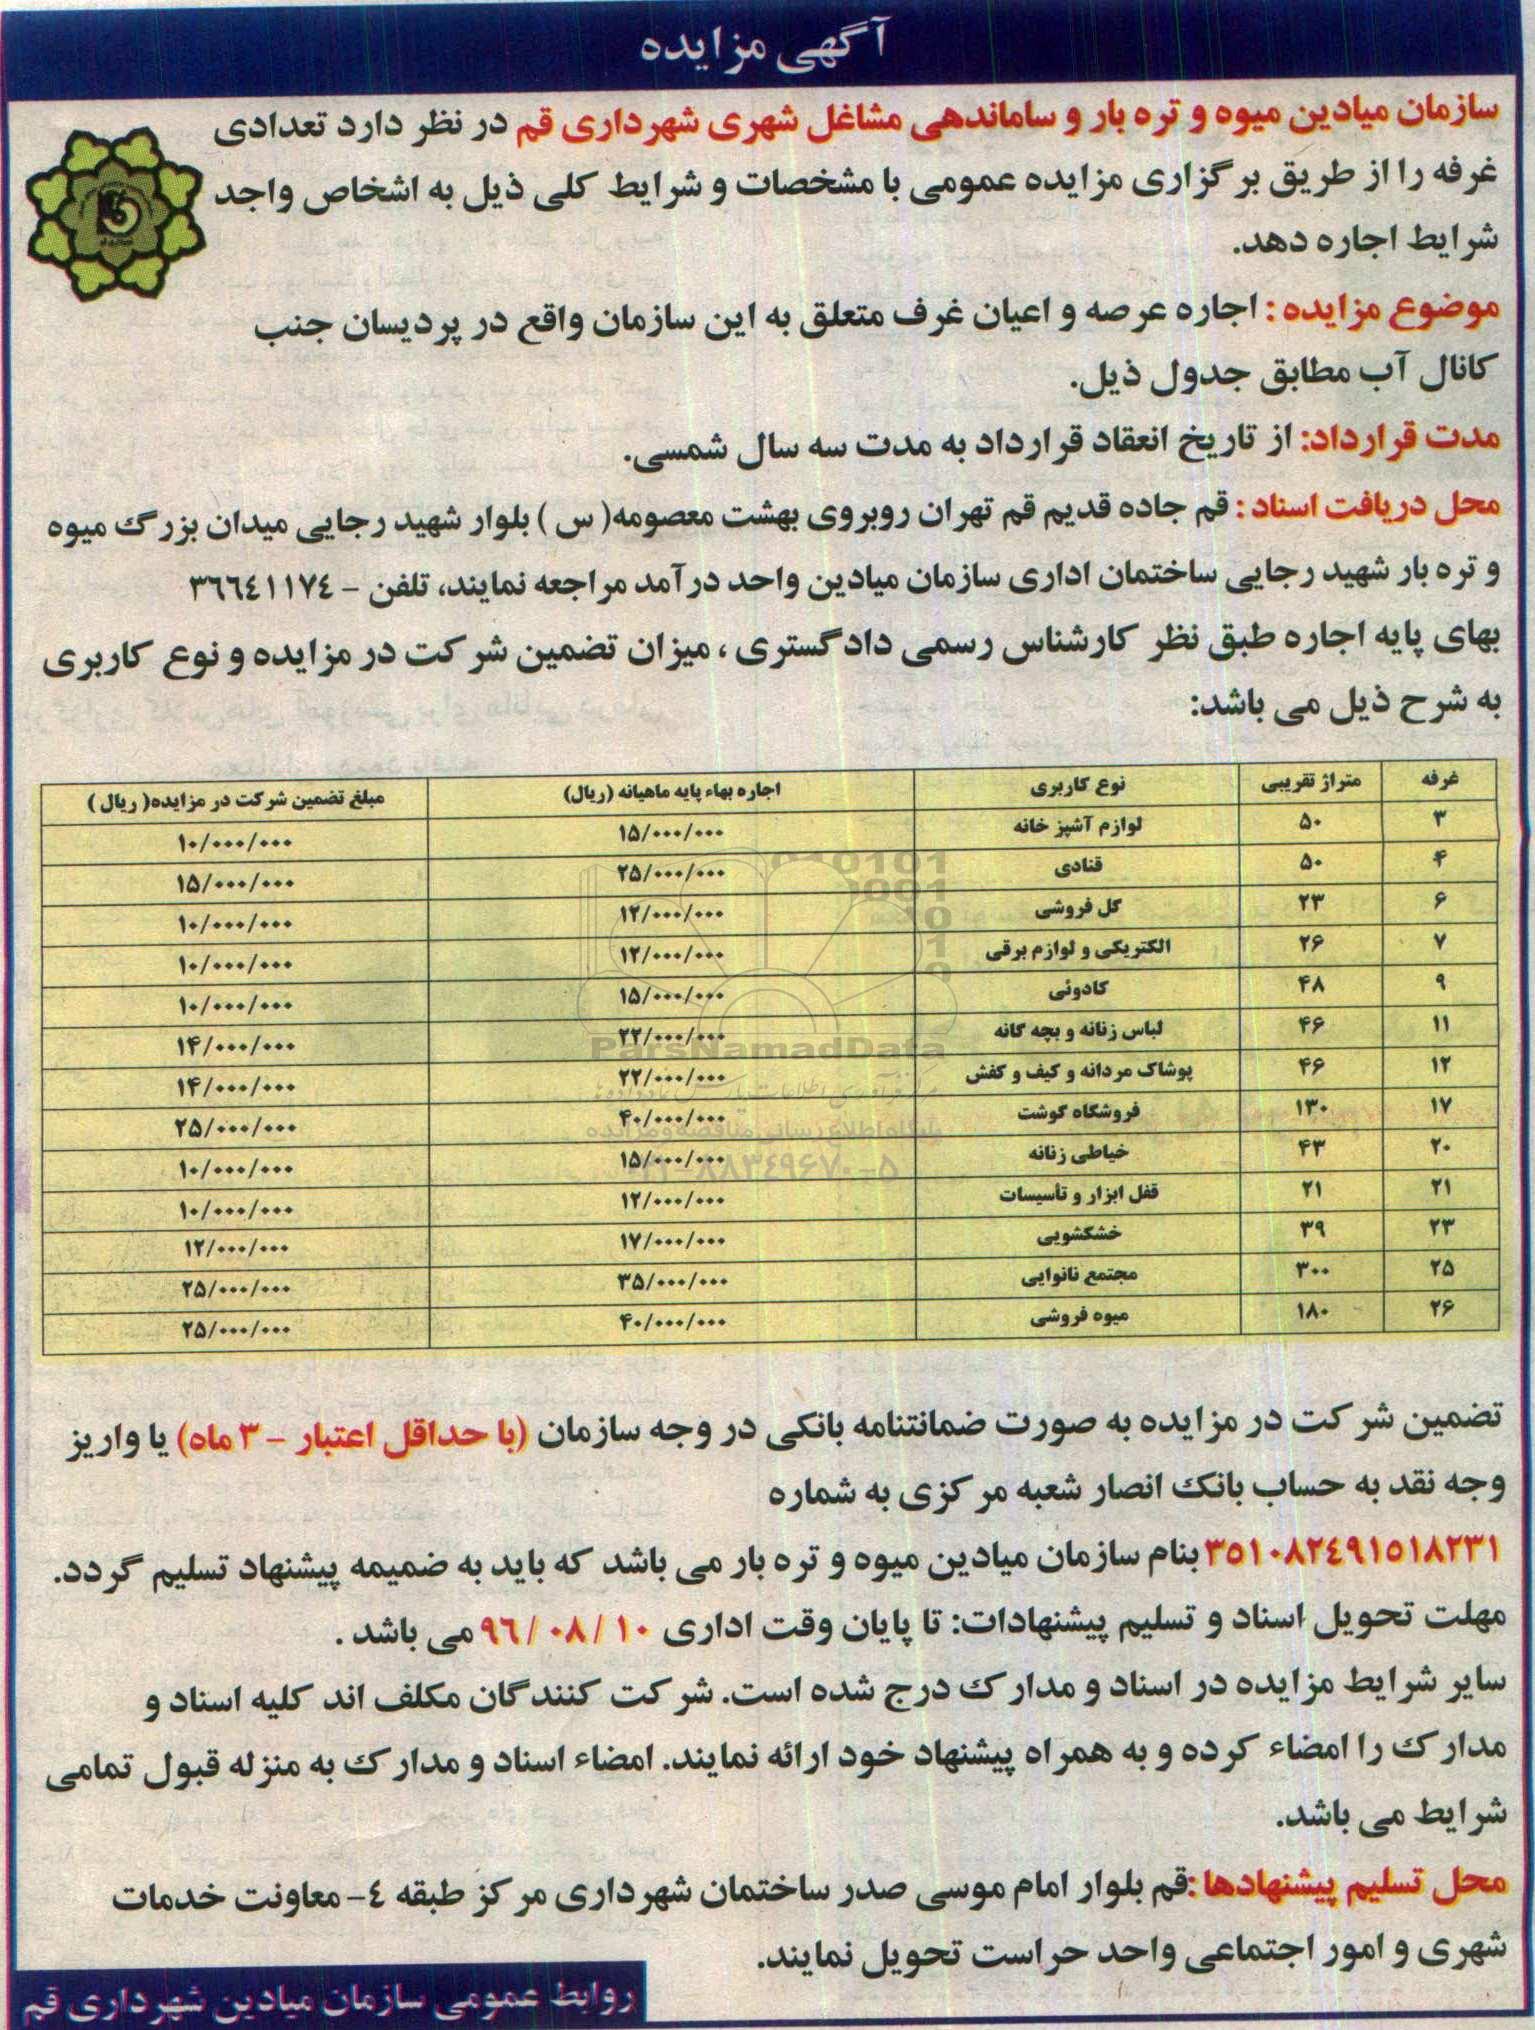 آگهی مزایده
سازمان میادین میوه و تره بار و ساماندهی مشاغل شهری شهرداری قم در نظر دارد تعدادی
غرفه را از طریق برگزاری مزایده عمومی با مشخصات و شرایط کلی ذیل به اشخاص واجد
شرایط اجاره دهد.
موضوع مزایده : اجاره عرصه و اعیان غرف متعلق به این سازمان واقع در پردیسان جنب
کانال آب مطابق جدول ذیل.
مدت قرارداد: از تاریخ انعقاد قرارداد به مدت سه سال شمسی.
محل دریافت اسناد : قم جاده قدیم قم تهران روبروی بهشت معصومه( س ) بلوار شهید رجایی میدان بزرگ میوه
و تره بار شهید رجایی ساختمان اداری سازمان میادین واحد درآمد مراجعه نمایند، تلفن - ۳۶۶۴۱۱۷۴
بهای پایه اجاره طبق نظر کارشناس رسمی دادگستری ، میزان تضمین شرکت در مزایده و نوع کاربری
به شرح ذیل می باشد:
غرفه متراژ تقریبی نوع کاربری اجاره بهاء پایه ماهیانه (ریال) مبلغ تضمین شرکت در مزایده( ریال )
۳ ۵۰ لوازم آشپز خانه ۱۵/۰۰۰/۰۰۰ ۱۰/۰۰۰/۰۰۰
۴ ۵۰ قنادی ۲۵/۰۰۰/۰۰۰ ۱۵/۰۰۰/۰۰۰
۶ ۲۳ گل فروشی ۱۲/۰۰۰/۰۰۰ ۱۰/۰۰۰/۰۰۰
۷ ۲۶ الکتریکی و لوازم برقی ۱۲/۰۰۰/۰۰۰ ۱۰/۰۰۰/۰۰۰
۹ ۴۸ کادوئی ۱۵/۰۰۰/۰۰۰ ۱۰/۰۰۰/۰۰۰
۱۱ ۴۶ لباس زنانه و بچه گانه ۲۲/۰۰۰/۰۰۰ ۱۴/۰۰۰/۰۰۰
۱۲ ۴۶ پوشاک مردانه و کیف و کفش ۲۲/۰۰۰/۰۰۰ ۱۴/۰۰۰/۰۰۰
۱۷ ۱۳۰ فروشگاه گوشت ۴۰/۰۰۰/۰۰۰ ۲۵/۰۰۰/۰۰۰
۲۰ ۴۳ خیاطی زنانه ۱۵/۰۰۰/۰۰۰ ۱۰/۰۰۰/۰۰۰
۲۱ ۲۱ قفل ابزار و تأسیسات ۱۲/۰۰۰/۰۰۰ ۱۰/۰۰۰/۰۰۰
۲۳ ۳۹ خشکشویی ۱۷/۰۰۰/۰۰۰ ۱۲/۰۰۰/۰۰۰
۲۵ ۳۰۰ مجتمع نانوایی ۳۵/۰۰۰/۰۰۰ ۲۵/۰۰۰/۰۰۰
۲۶ ۱۸۰ میوه فروشی ۴۰/۰۰۰/۰۰۰ ۲۵/۰۰۰/۰۰۰
ParsNamadData
پایگاه اطلاع رسانی مناقصه و مزایده
۸۸۳۴۹۶۷۰-۵
تضمین شرکت در مزایده به صورت ضمانتنامه بانکی در وجه سازمان (با حداقل اعتبار - ۳ ماه) یا واریز
وجه نقد به حساب بانک انصار شعبه مرکزی به شماره
۳۵۱۰۸۲۴۹۱۵۱۸۲۳۱ بنام سازمان میادین میوه و تره بار می باشد که باید به ضمیمه پیشنهاد تسلیم گردد.
مهلت تحویل اسناد و تسلیم پیشنهادات: تا پایان وقت اداری ۱۰ /۰۸ /۹۶ می باشد .
سایر شرایط مزایده در اسناد و مدارک درج شده است. شرکت کنندگان مکلف اند کلیه اسناد و
مدارک را امضاء کرده و به همراه پیشنهاد خود ارائه نمایند. امضاء اسناد و مدارک به منزله قبول تمامی
شرایط می باشد.
محل تسلیم پیشنهادها :قم بلوار امام موسی صدر ساختمان شهرداری مرکز طبقه ۴- معاونت خدمات
شهری و امور اجتماعی واحد حراست تحویل نمایند.
روابط عمومی سازمان میادین شهرداری قم